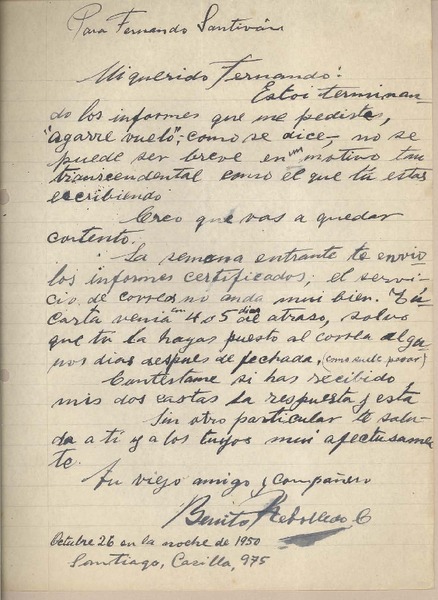 Para Fernando Santiván
Mi querido Fernando:
Estoi terminan-
do los informes que me pediste,
"agarre vuelo", como se dice, no se
puede ser breve en un motivo tan
transcendental como el que tú estas
escribiendo
Creo que vas a quedar
contento.
La semana entrante te envio
los informes certificados; el servi-
cio de correos no anda mui bien. Tú
carta venia con 4 o 5 dias de atraso, salvo
que tu la hayas puesto al correo algu
nos dias despues de fechada, (como suele pasar)
Contéstame si has recibido
mis dos cartas la respuesta y esta
Sin otro particular te salu-
da a ti y a los tuyos mui afectusame
te.
Tu viejo amigo y compañero
Benito Rebolledo C
Octubre 26 en la noche de 1950
Santiago, Casilla, 975